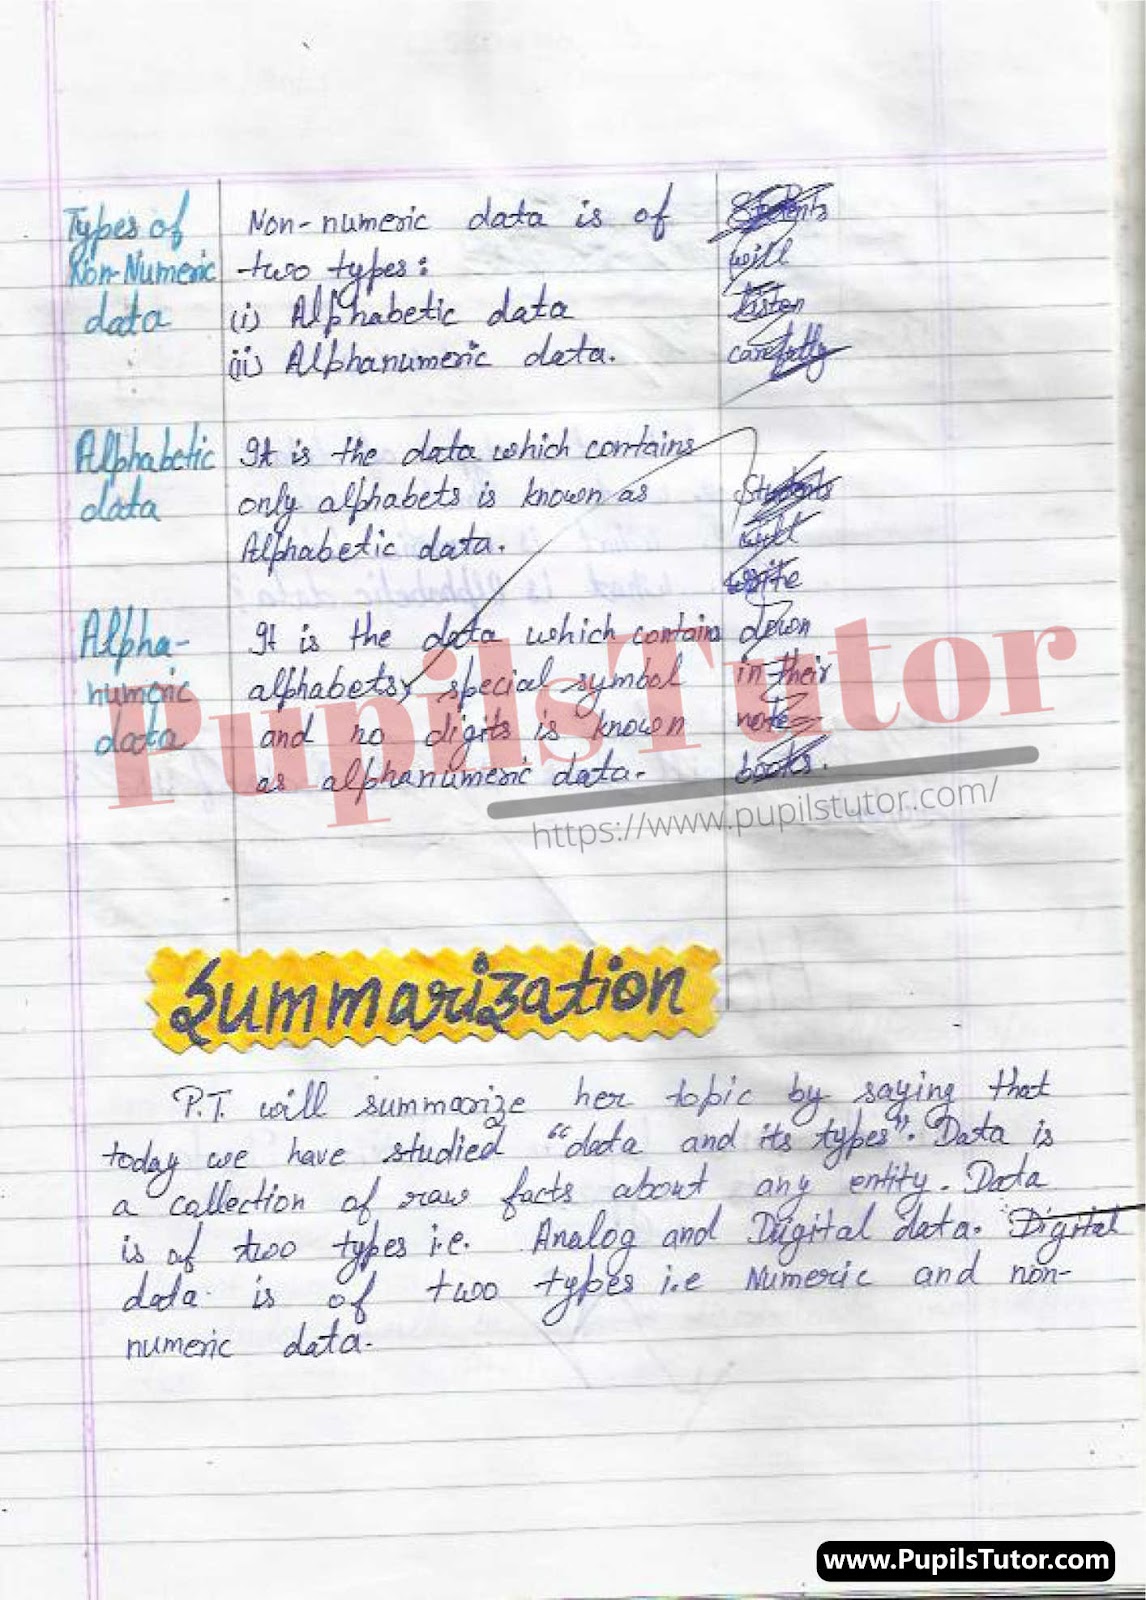 Types of
Non-Numeric
data
Non-numeric data is of
two types:
(i) Alphabetic data
(ii) Alphanumeric data.
Students
will
listen
carefully
Alphabetic
data
It is the data which contains
only alphabets is known as
Alphabetic data.
Students
will
write
down
in their
note
books.
Alpha-
numeric
data
It is the data which contains
alphabets, special symbol
and no digits is known
as alphanumeric data.
PupilsTutor
https://www.pupilstutor.com/
Summarization
P.T. will summarize her topic by saying that
today we have studied "data and its types". Data is
a collection of raw facts about any entity. Data
is of two types i.e. Analog and Digital data. Digital
data is of two types i.e Numeric and non-
numeric data.
www.PupilsTutor.com